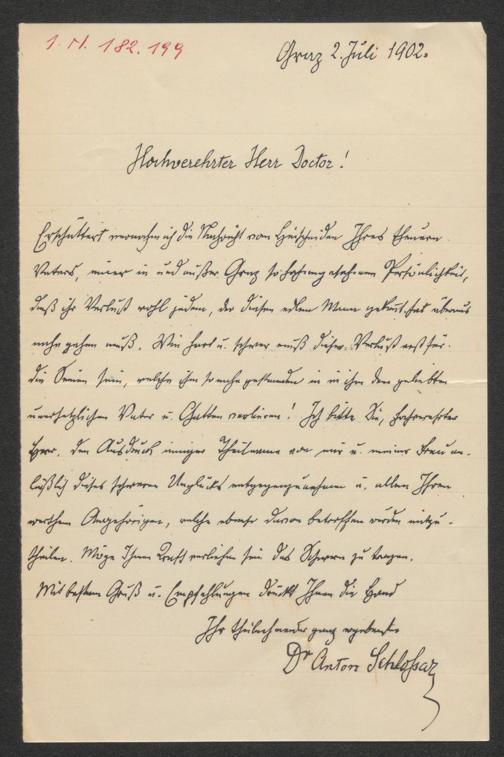 I. N. 182.199
Graz 2. Juli 1902.
Hochverehrter Herr Doctor!
Erschüttert vernahm ich die Nachricht vom Hinscheiden Ihres theuern
Vaters, einer in und außer Graz so hochangesehenen Persönlichkeit,
daß ihr Verlust wohl jedem, der diesen edlen Mann gekannt hat überaus
nahe gehen muß. Wie hart u. schwer muß dieser Verlust erst für
die Seinen sein, welche ihm so nahe gestanden u. in ihm den geliebten
unersetzlichen Vater u. Gatten verlieren! Ich bitte Sie, hochverehrter
Herr, den Ausdruck inniger Theilnahme von mir u. meiner Frau an-
läßlich dieses schweren Unglücks entgegenzunehmen u. allen Ihren
werthen Angehörigen, welche ebenso davon betroffen wurden mitzu-
theilen. Möge Ihnen Kraft verliehen sein das Schwere zu tragen.
Mit bestem Gruß u. Empfehlungen drückt Ihnen die Hand
Ihr theilnehmender ganz ergebenster
Dr Anton Schlossar